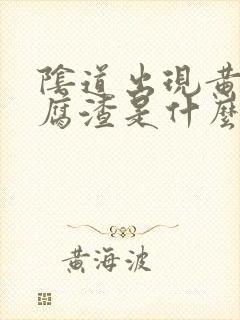 陰道出現黃
腐渣是什麼
黃海波